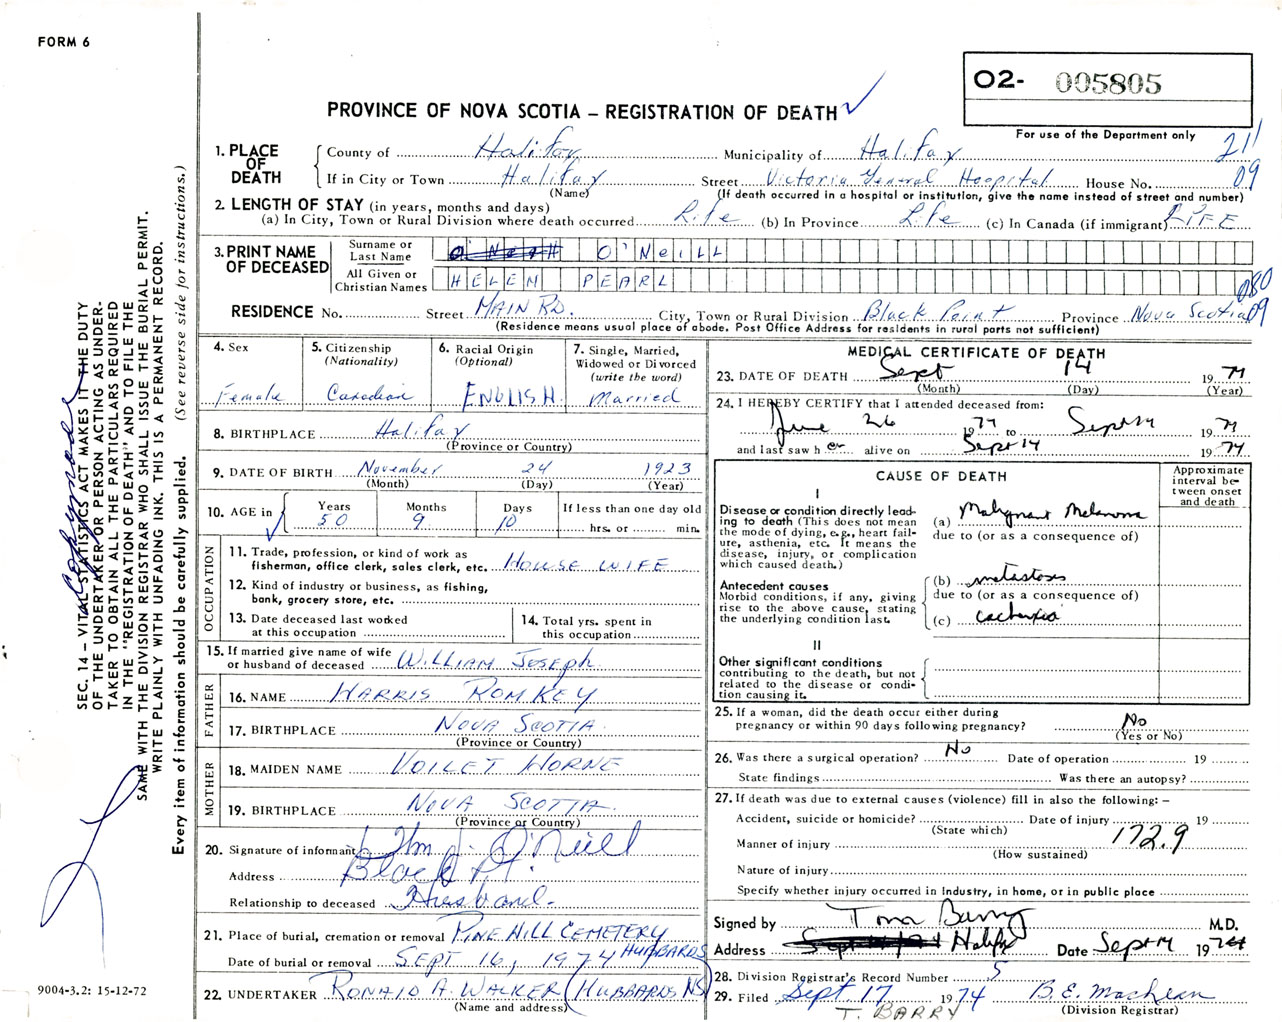 FORM 6
O2- 005805
PROVINCE OF NOVA SCOTIA – REGISTRATION OF DEATH ✓
For use of the Department only
211
1. PLACE OF DEATH
County of Halifax Municipality of Halifax
If in City or Town Halifax Street Victoria General Hospital House No. 09
(Name) (If death occurred in a hospital or institution, give the name instead of street and number)
2. LENGTH OF STAY (in years, months and days)
(a) In City, Town or Rural Division where death occurred Life (b) In Province Life (c) In Canada (if immigrant) LIFE
3. PRINT NAME OF DECEASED
Surname or Last Name O'NEILL
All Given or Christian Names HELEN PEARL
080
RESIDENCE No. Street MAIN RD. City, Town or Rural Division Black Point Province Nova Scotia 09
(Residence means usual place of abode. Post Office Address for residents in rural parts not sufficient)
4. Sex
Female
5. Citizenship
(Nationality)
Canadian
6. Racial Origin
(Optional)
ENGLISH
7. Single, Married,
Widowed or Divorced
(write the word)
Married
8. BIRTHPLACE Halifax
(Province or Country)
9. DATE OF BIRTH November 24 1923
(Month) (Day) (Year)
10. AGE in
Years Months Days If less than one day old
50 9 10 hrs. or min.
OCCUPATION
11. Trade, profession, or kind of work as
fisherman, office clerk, sales clerk, etc. HOUSE WIFE
12. Kind of industry or business, as fishing,
bank, grocery store, etc.
13. Date deceased last worked
at this occupation
14. Total yrs. spent in
this occupation
15. If married give name of wife
or husband of deceased WILLIAM JOSEPH
FATHER
16. NAME HARRIS ROMKEY
17. BIRTHPLACE NOVA SCOTIA
(Province or Country)
MOTHER
18. MAIDEN NAME VOILET HORNE
19. BIRTHPLACE NOVA SCOTIA
(Province or Country)
20. Signature of informant Wm J. O'Neill
Address Black Pt.
Relationship to deceased Husband
21. Place of burial, cremation or removal PINE HILL CEMETERY
HUBBARDS
Date of burial or removal SEPT 16, 1974
22. UNDERTAKER RONALD A. WALKER (HUBBARDS NS)
(Name and address)
MEDICAL CERTIFICATE OF DEATH
23. DATE OF DEATH Sept 14 19 74
(Month) (Day) (Year)
24. I HEREBY CERTIFY that I attended deceased from:
June 26 1974 to Sept 14 19 74
and last saw h er alive on Sept 14 19 74
CAUSE OF DEATH
Approximate interval between onset and death
I
Disease or condition directly leading to death (This does not mean the mode of dying, e.g., heart failure, asthenia, etc. It means the disease, injury, or complication which caused death.)
(a) Malignant Melanoma
due to (or as a consequence of)
Antecedent causes
Morbid conditions, if any, giving rise to the above cause, stating the underlying condition last.
(b) metastases
due to (or as a consequence of)
(c) cachexia
II
Other significant conditions
contributing to the death, but not
related to the disease or condition causing it.
25. If a woman, did the death occur either during
pregnancy or within 90 days following pregnancy? No
(Yes or No)
26. Was there a surgical operation? No Date of operation 19
State findings Was there an autopsy?
27. If death was due to external causes (violence) fill in also the following: –
Accident, suicide or homicide? Date of injury 19
(State which)
172.9
Manner of injury
(How sustained)
Nature of injury
Specify whether injury occurred in Industry, in home, or in public place
Signed by Tom Barry M.D.
Address Halifax Date Sept 14 1974
28. Division Registrar's Record Number 5
29. Filed Sept. 17 1974 B.E. MacLean
(Division Registrar)
T. BARRY
SEC. 14 – VITAL STATISTICS ACT MAKES IT THE DUTY
OF THE UNDERTAKER OR PERSON ACTING AS UNDER-
TAKER TO OBTAIN ALL THE PARTICULARS REQUIRED
IN THE "REGISTRATION OF DEATH" AND TO FILE THE
SAME WITH THE DIVISION REGISTRAR WHO SHALL ISSUE THE BURIAL PERMIT.
WRITE PLAINLY WITH UNFADING INK. THIS IS A PERMANENT RECORD.
Every item of information should be carefully supplied. (See reverse side for instructions.)
Copy made
9004-3.2: 15-12-72